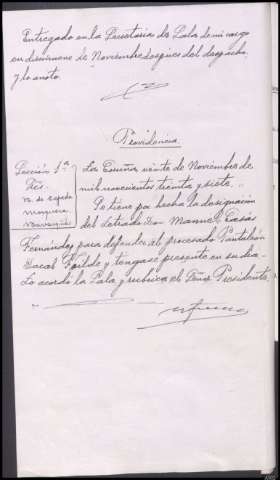 Entregado en la Secretaria de Sala de mi cargo
en diecinueve de Noviembre despues del despacho,
y lo anoto.
Providencia
Sección 1ª
La Coruña veinte de Noviembre de
mil novecientos treinta y siete.
Se tiene por hecha la designación
del Letrado Don Manuel Casás
Fernández para defender al procesado Pantaleón
y tengase presente en su dia.
Lo acordó la Sala y rubrica el Señor Presidente